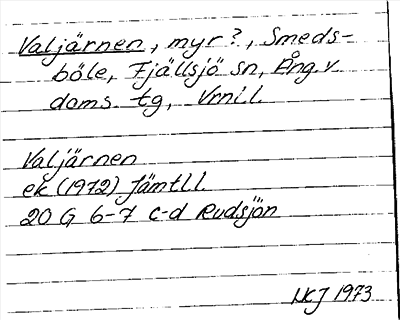 Valjärnen, myr?, Smeds-
böle, Fjällsjö sn, Ång. v.
doms. tg, Vmil.
Valjärnen
ek (1972) Jämtl l.
20 G 6-7 c-d Rudsjön
1973